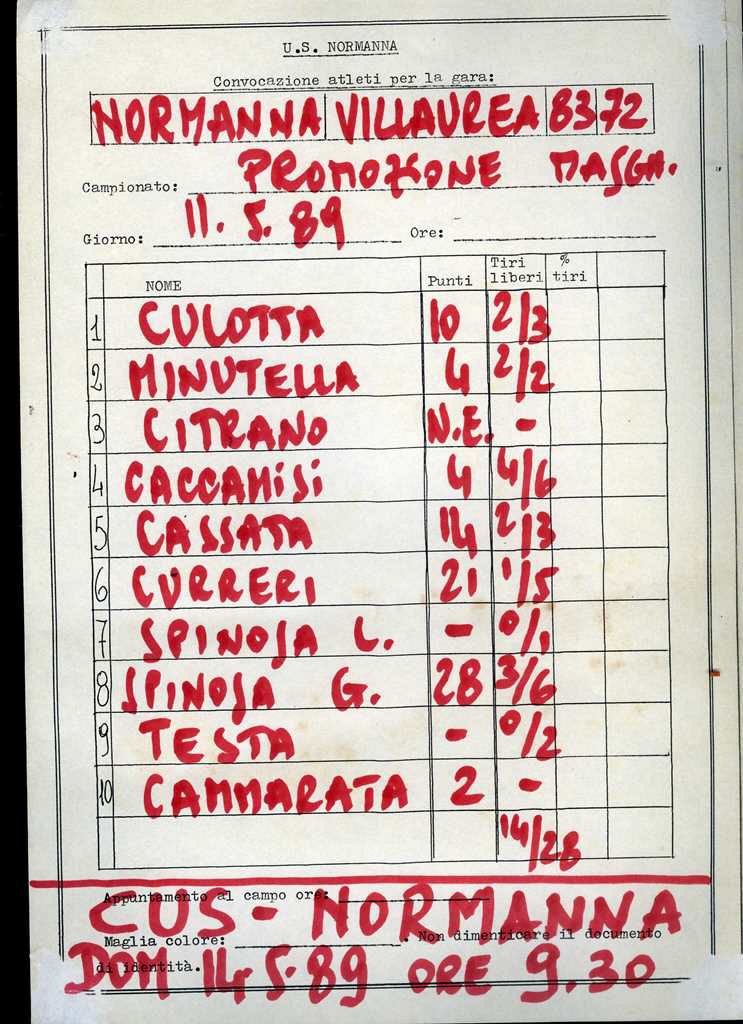 U.S. NORMANNA
Convocazione atleti per la gara:
NORMANNA VILLAUREA 83 72
Campionato: PROMOZIONE MASCH.
Giorno: 11.5.89 Ore:
NOME Punti Tiri liberi % tiri
1 CULOTTA 10 2/3
2 MINUTELLA 4 2/2
3 CITRANO N.E. -
4 CACCAMISI 4 4/6
5 CASSATA 14 2/3
6 CURRERI 21 1/5
7 SPINOSA L. - 0/1
8 SPINOSA G. 28 3/6
9 TESTA - 0/2
10 CAMMARATA 2 -
14/28
Appuntamento al campo ore:
CUS - NORMANNA
Maglia colore: . Non dimenticare il documento
di identità.
DOM 14.5.89 ORE 9.30